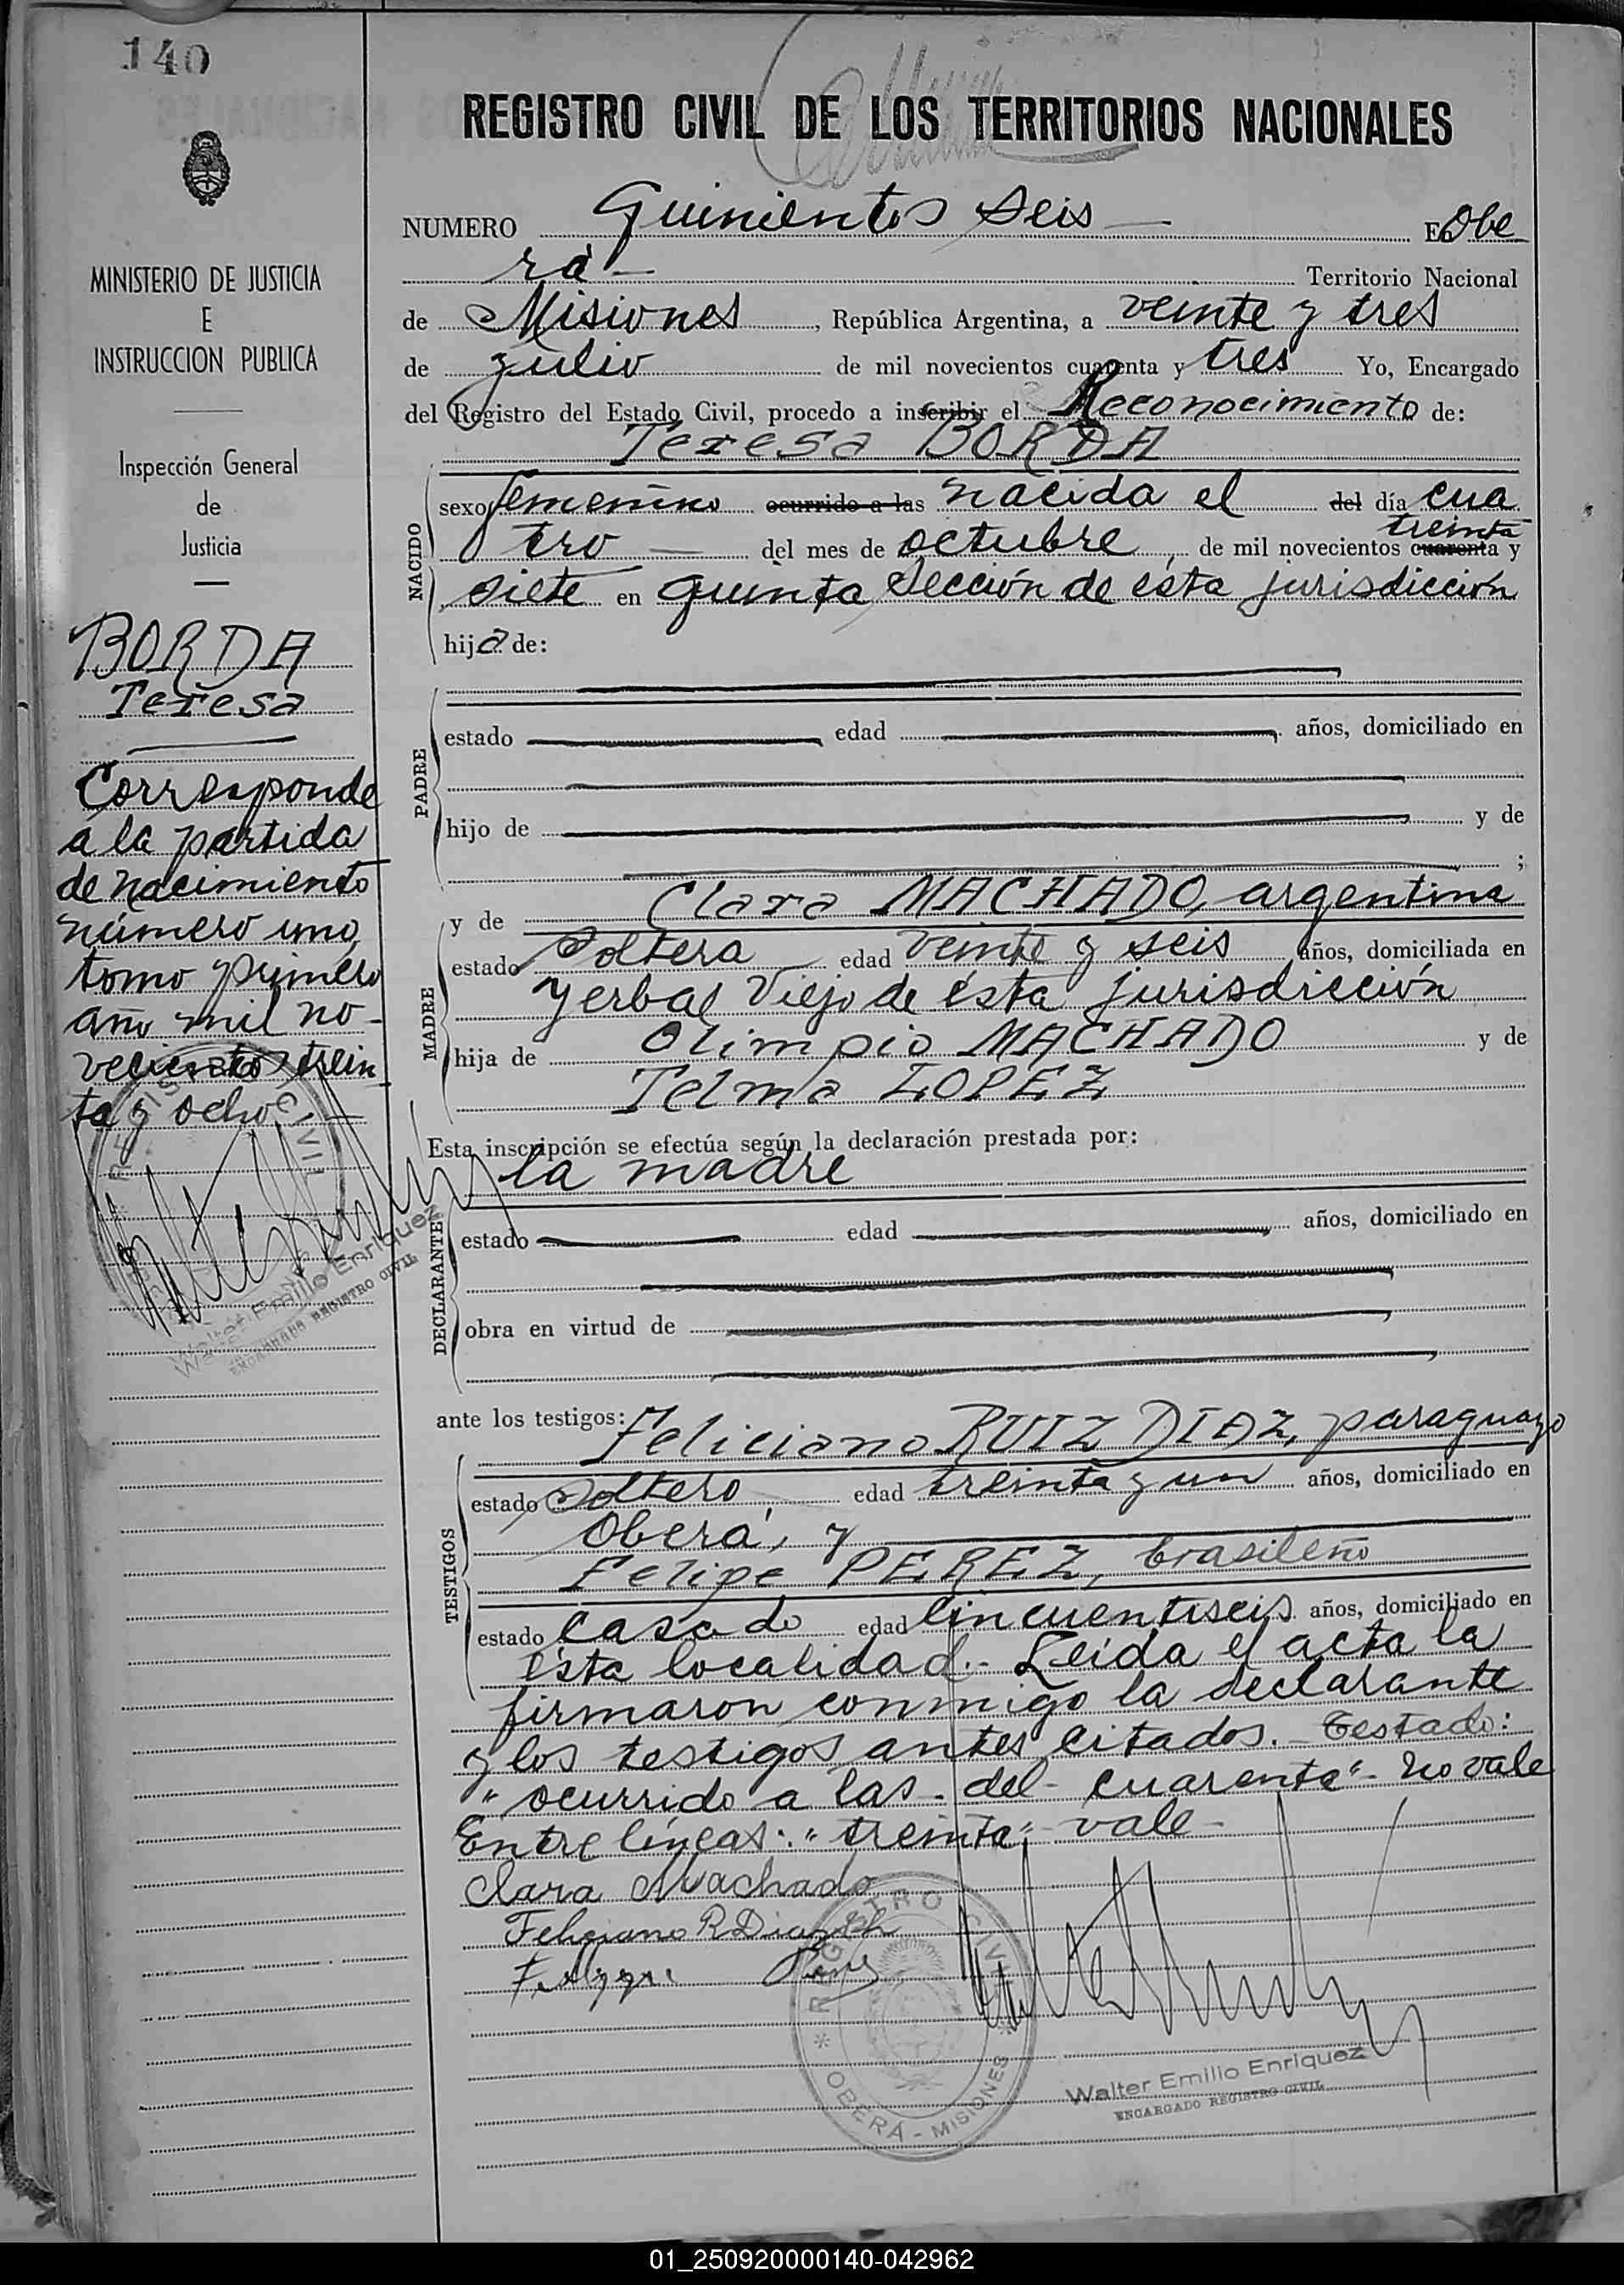 140
MINISTERIO DE JUSTICIA
E
INSTRUCCION PUBLICA
Inspección General
de
Justicia
BORDA
Teresa
Corresponde
a la partida
de nacimiento
número uno,
tomo primero
año mil no-
vecientos trein
ta y ocho
REGISTRO CIVIL
Walter Emilio Enriquez
ENCARGADO REGISTRO CIVIL
REGISTRO CIVIL DE LOS TERRITORIOS NACIONALES
NUMERO Quinientos seis En Obe
rá Territorio Nacional
de Misiones, República Argentina, a veinte y tres
de julio de mil novecientos cuarenta y tres Yo, Encargado
del Registro del Estado Civil, procedo a inscribir el Reconocimiento de:
Teresa BORDA
NACIDO
sexo femenino ocurrido a las nacida el del día cua
treinta
tro del mes de octubre, de mil novecientos cuarenta y
siete en quinta Sección de ésta jurisdicción
hija de:
PADRE
estado edad años, domiciliado en
hijo de y de
;
MADRE
y de Clara MACHADO, argentina
estado Soltera edad veinte y seis años, domiciliada en
Yerbal Viejo de ésta jurisdicción
hija de Olimpio MACHADO y de
Telma LOPEZ
Esta inscripción se efectúa según la declaración prestada por:
la madre
DECLARANTE
estado edad años, domiciliado en
obra en virtud de
ante los testigos: Feliciano RUIZ DIAZ, paraguayo
TESTIGOS
estado Soltero edad treinta y un años, domiciliado en
Oberá, y
Felipe PEREZ, brasileño
estado casado edad cincuentiseis años, domiciliado en
ésta localidad.- Leída el acta la
firmaron conmigo la declarante
y los testigos antes citados.- Testado:
"ocurrido a las - del - cuarenta" - no vale
Entre líneas: "treinta" - vale -
Clara Machado
Feliciano R Diaz
REGISTRO CIVIL
OBERÁ - MISIONES
Walter Emilio Enriquez
ENCARGADO REGISTRO CIVIL
01_250920000140-042962